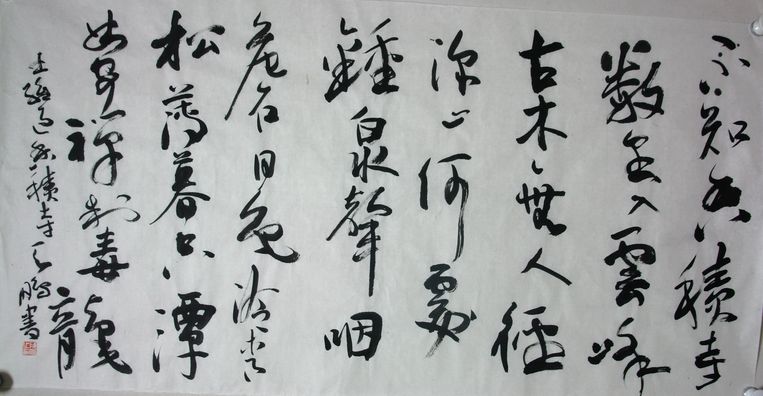 不知香積寺
數里入雲峰
古木無人徑
深山何處
鍾泉聲咽
危石日色冷青
松薄暮空潭
曲安禪制毒龍
王維過香積寺 鵬書